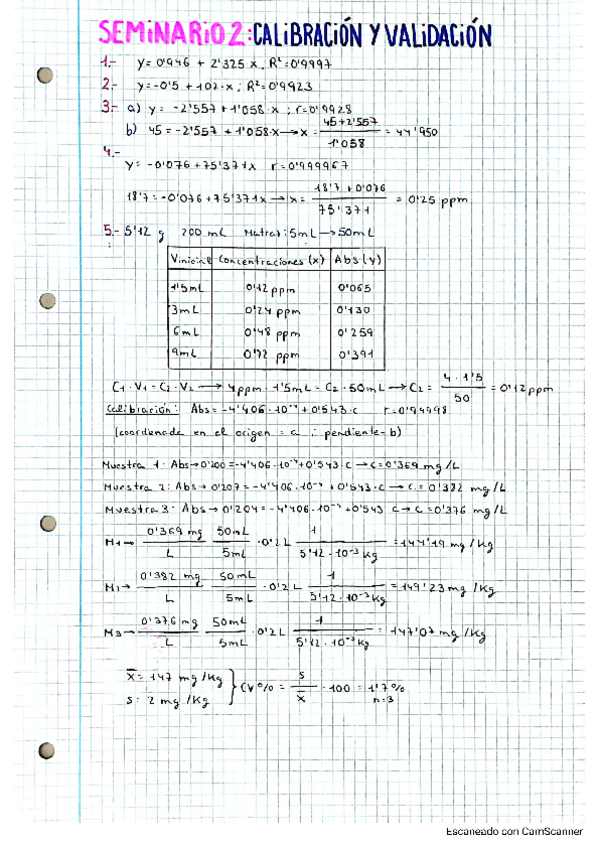 SEMINARIO 2: CALIBRACIÓN Y VALIDACIÓN
1.- y=0'946 + 2'325 x, R²=0'9997
2.- y=-0'5 + 102·x ; R²=0'9923
3.- a) y = -2'557+1'058·x ; r=0'9928
b) 45 = -2'557 + 1'058·x → x = 45+2'557 / 1'058 = 44'950
4.-
y= -0'076+75'371x r=0'999967
18'7 = -0'076+75'371x → x = 18'7+0'076 / 75'371 = 0'25 ppm
5.- 5'12 g 200 mL Matraz: 5mL → 50mL
Vinicial Concentraciones (x) Abs (y)
1'5mL 0'12 ppm 0'065
3mL 0'24 ppm 0'130
6mL 0'48 ppm 0'259
9mL 0'72 ppm 0'391
C1·V1 = C2·V2 → 4ppm·1'5mL = C2·50mL → C2 = 4·1'5 / 50 = 0'12ppm
Calibración: Abs= -4'406·10⁻⁴+0'543·c r=0'99998
(coordenada en el origen = a ; pendiente=b)
Muestra 1: Abs→0'200=-4'406·10⁻⁴+0'543·c → c=0'369 mg/L
Muestra 2: Abs→0'207=-4'406·10⁻⁴+0'543·c → c=0'382 mg/L
Muestra 3: Abs→0'204=-4'406·10⁻⁴+0'543 c → c=0'376 mg/L
M1→ 0'369 mg / L 50mL / 5mL ·0'2L 1 / 5'12·10⁻³Kg =144'19 mg/Kg
M2→ 0'382 mg / L 50mL / 5mL ·0'2L 1 / 5'12·10⁻³Kg =149'23 mg/Kg
M3→ 0'376 mg / L 50mL / 5mL ·0'2L 1 / 5'12·10⁻³Kg =147'07 mg/Kg
x̄=147 mg/Kg
s=2 mg/Kg } CV% = s / x̄ ·100 = 1'7%
n=3
Escaneado con CamScanner